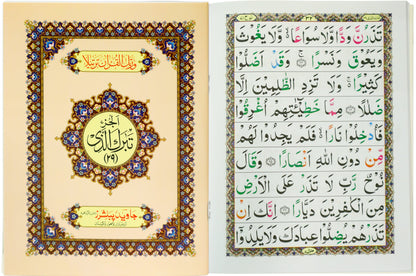 ورتل القرآن ترتيلا
الجزء
تبرك الذى
(٢٩)
تَذَرُنَّ وَدًّا وَّلَا سُوَاعًا ۙ وَّلَا يَغُوْثَ
وَيَعُوْقَ وَنَسْرًا ۚ وَقَدْ اَضَلُّوْا
كَثِيْرًا ۚ وَلَا تَزِدِ الظّٰلِمِيْنَ اِلَّا
ضَلٰلًا مِمَّا خَطِيْٓـٰٔتِهِمْ اُغْرِقُوْا
فَاُدْخِلُوْا نَارًا ۙ فَلَمْ يَجِدُوْا لَهُمْ
مِّنْ دُوْنِ اللّٰهِ اَنْصَارًا وَقَالَ
نُوْحٌ رَّبِّ لَا تَذَرْ عَلَى الْاَرْضِ
مِنَ الْكٰفِرِيْنَ دَيَّارًا اِنَّكَ اِنْ
تَذَرْهُمْ يُضِلُّوْا عِبَادَكَ وَلَا يَلِدُوْٓا